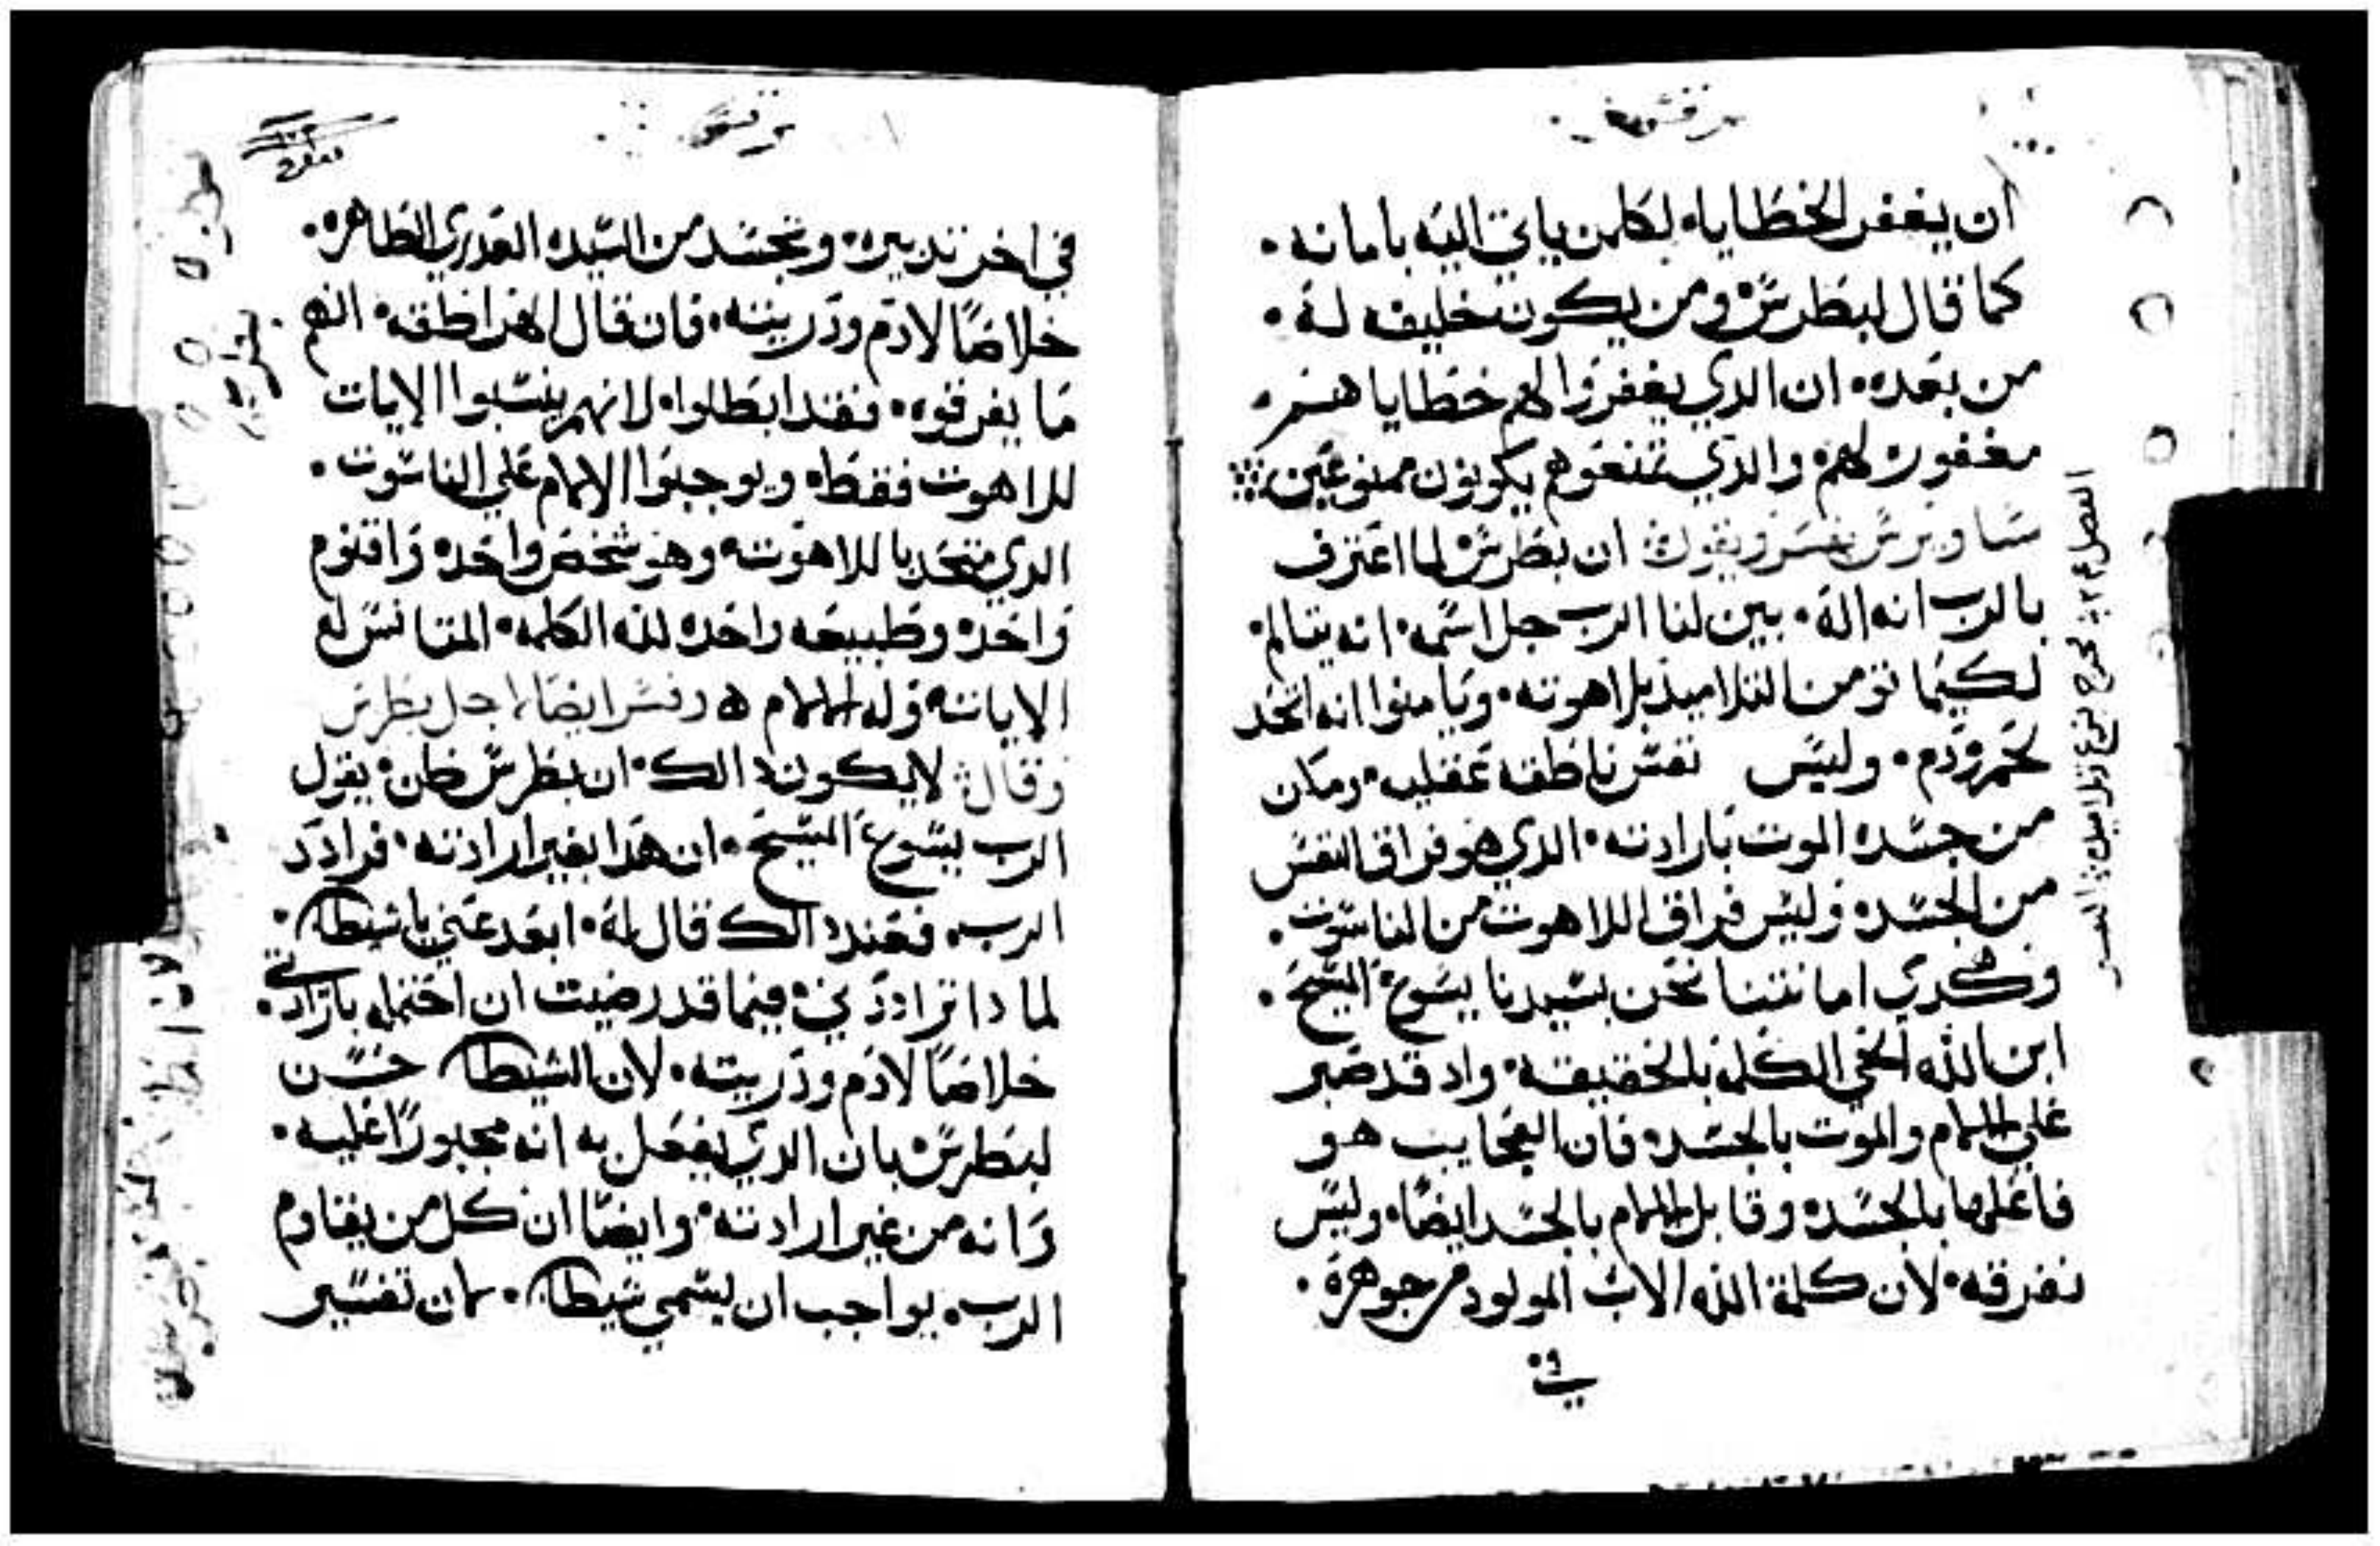 مرقس
ان يغفر الخطايا لكلمن ياتي اليه بامانه.
كما قال لبطرس ومن يكون خليفه له.
من بعده. ان الدي يغفروا لهم خطاياهم.
مغفورت لهم والدي تمنعوهم يكونون ممنوعين
ساويرس يفسر ويقول ان بطرس لما اعترف
بالرب انه اله. بين لنا الرب جل اسمه. انه يتالم.
لكيما تومن التلاميد بلاهوته. ويامنوا انه اتحد
بجسد ودم. وليس نفس ناطقه عقليه. ومكن
من جسده الموت بارادته. الدي هو فراق النفس
من الجسد. وليس فراق اللاهوت من الناسوت.
وهكدي امانتنا نحن بسيدنا يسوع المسيح.
ابن الله الحي الكلمه بالحقيقه. واد قد صبر
علي الالام والموت بالجسد. فان العجايب هو
فاعلها بالجسد. وقابل الالام بالجسد ايضا. وليس
نفرقه. لان كلمة الله الاب المولود من جوهرة.
مرقس
في اخر تدبيره. وتجسد من السيده العدري الطاهره.
خلاصا لادم ودريته. فان قال الهراطقه. انهم
ما يفرقوه. فقد ابطلوا. لانهم ينسبوا الايات
للاهوت فقط. ويوجبوا الالام علي الناسوت.
الدي متحد باللاهوته. وهو شخص واحد. واقنوم
واحد. وطبيعه واحده لله الكلمه. المتانس له
الاياته وله الالام ه وفسر ايضا لاجل بطرس
وقال لا يكون دالك. ان بطرس ظن. يقول
الرب يسوع المسيح. ان هدا بغير ارادته. فرادد
الرب. فعند دالك قال له. ابعد عني ياشيطان.
لما دا ترادد ني. فيما قد رضيت ان احتمله بارادتي.
خلاصا لادم ودريته. لان الشيطان حسن
لبطرس بان الدي يفعل به انه مجبورا عليه.
وانه من غير ارادته. وايضا ان كل من يقاوم
الرب. بواجب ان يسمي شيطان. لان تفسير